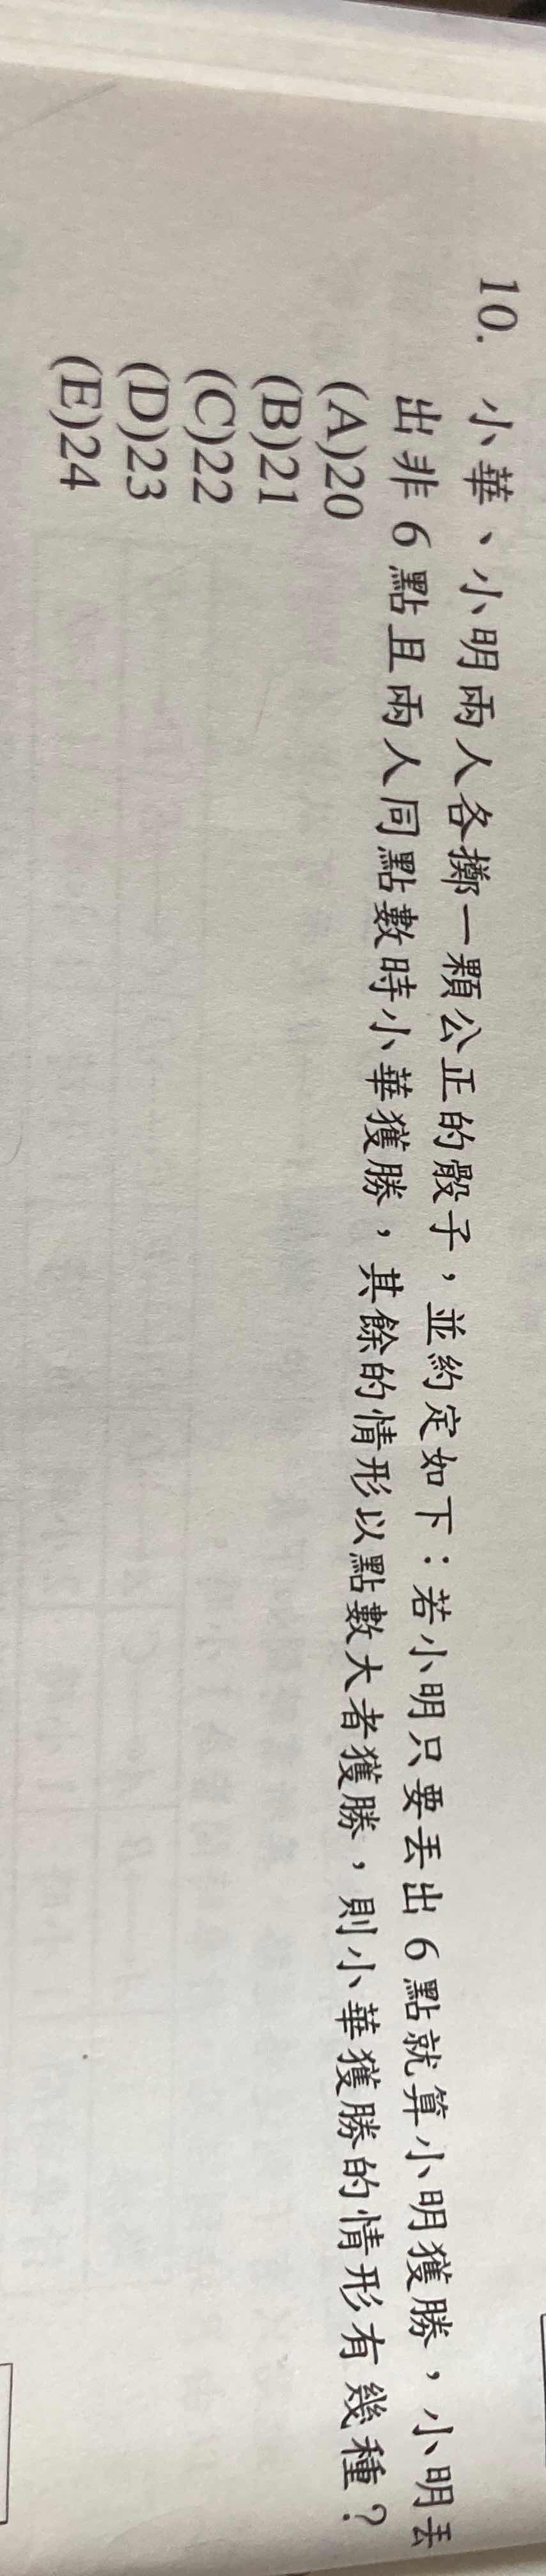 10. 小華、小明兩人各擲一顆公正的骰子，並約定如下：若小明只要丟出 6 點就算小明獲勝，小明丟
出非 6 點且兩人同點數時小華獲勝，其餘的情形以點數大者獲勝，則小華獲勝的情形有幾種？
(A)20
(B)21
(C)22
(D)23
(E)24